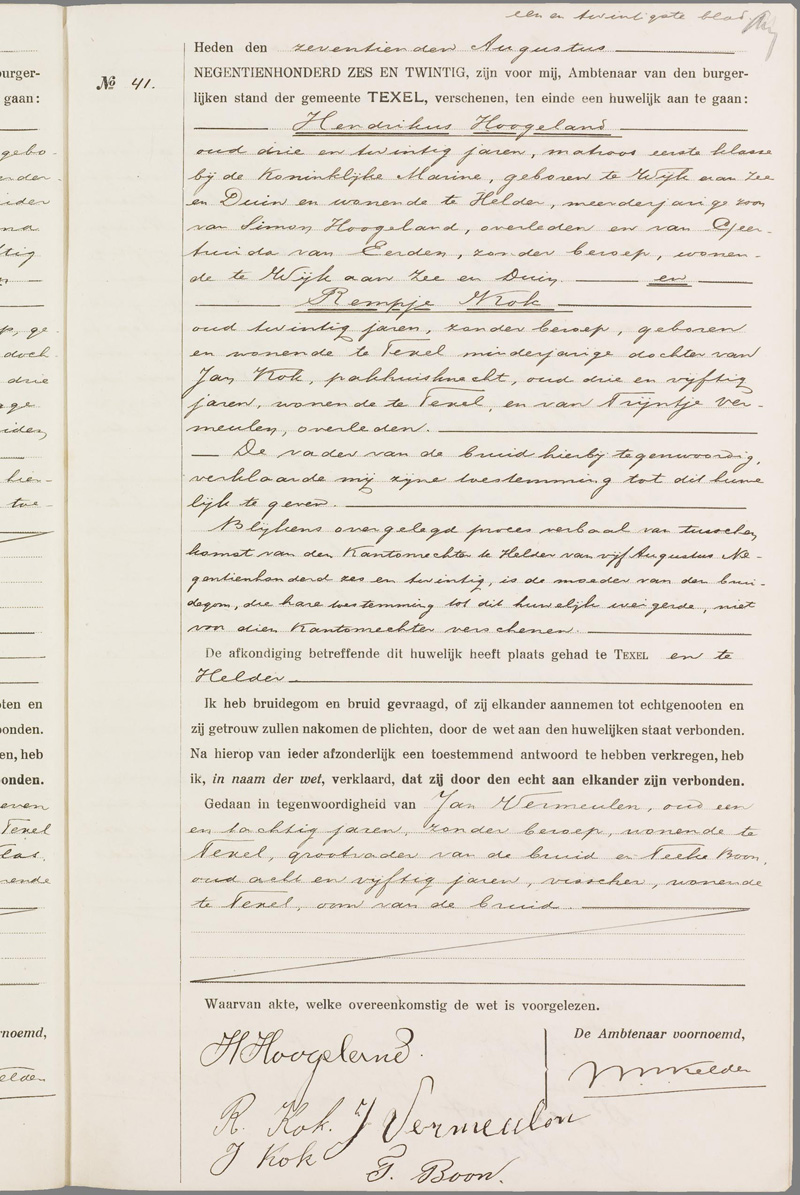 een en twintigste blad
Heden den zeventienden Augustus
No 41.
NEGENTIENHONDERD ZES EN TWINTIG, zijn voor mij, Ambtenaar van den burger-
lijken stand der gemeente TEXEL, verschenen, ten einde een huwelijk aan te gaan:
Hendrikus Hoogeland
oud drie en twintig jaren, matroos eerste klasse
bij de Koninklijke Marine, geboren te Wijk aan Zee
en Duin en wonende te Helder, meerderjarige zoon
van Simon Hoogeland, overleden en van Geer-
truida van Eerden, zonder beroep, wonen-
de te Wijk aan Zee en Duin. en
Rempje Kok
oud twintig jaren, zonder beroep, geboren
en wonende te Texel minderjarige dochter van
Jan Kok, pakhuisknecht, oud drie en vijftig
jaren, wonende te Texel, en van Trijntje Ver-
meulen, overleden.
De vader van de bruid hierbij tegenwoordig,
verklaarde mij zijne toestemming tot dit huwe
lijk te geven.
Blijkens overgelegd proces verbaal van tusschen
komst van den Kantonrechter te Helder van vijf Augustus Ne-
gentienhonderd zes en twintig, is de moeder van den brui-
degom, die hare toestemming tot dit huwelijk weigerde, niet
voor dien Kantonrechter verschenen.
De afkondiging betreffende dit huwelijk heeft plaats gehad te TEXEL en te
Helder
Ik heb bruidegom en bruid gevraagd, of zij elkander aannemen tot echtgenooten en
zij getrouw zullen nakomen de plichten, door de wet aan den huwelijken staat verbonden.
Na hierop van ieder afzonderlijk een toestemmend antwoord te hebben verkregen, heb
ik, in naam der wet, verklaard, dat zij door den echt aan elkander zijn verbonden.
Gedaan in tegenwoordigheid van Jan Vermeulen, oud een
en tachtig jaren, zonder beroep, wonende te
Texel, grootvader van de bruid en Teeke Boon,
oud acht en vijftig jaren, visscher, wonende
te Texel, oom van de bruid.
Waarvan akte, welke overeenkomstig de wet is voorgelezen.
De Ambtenaar voornoemd,
H Hoogeland.
R. Kok. J Vermeulen
J Kok T. Boon.